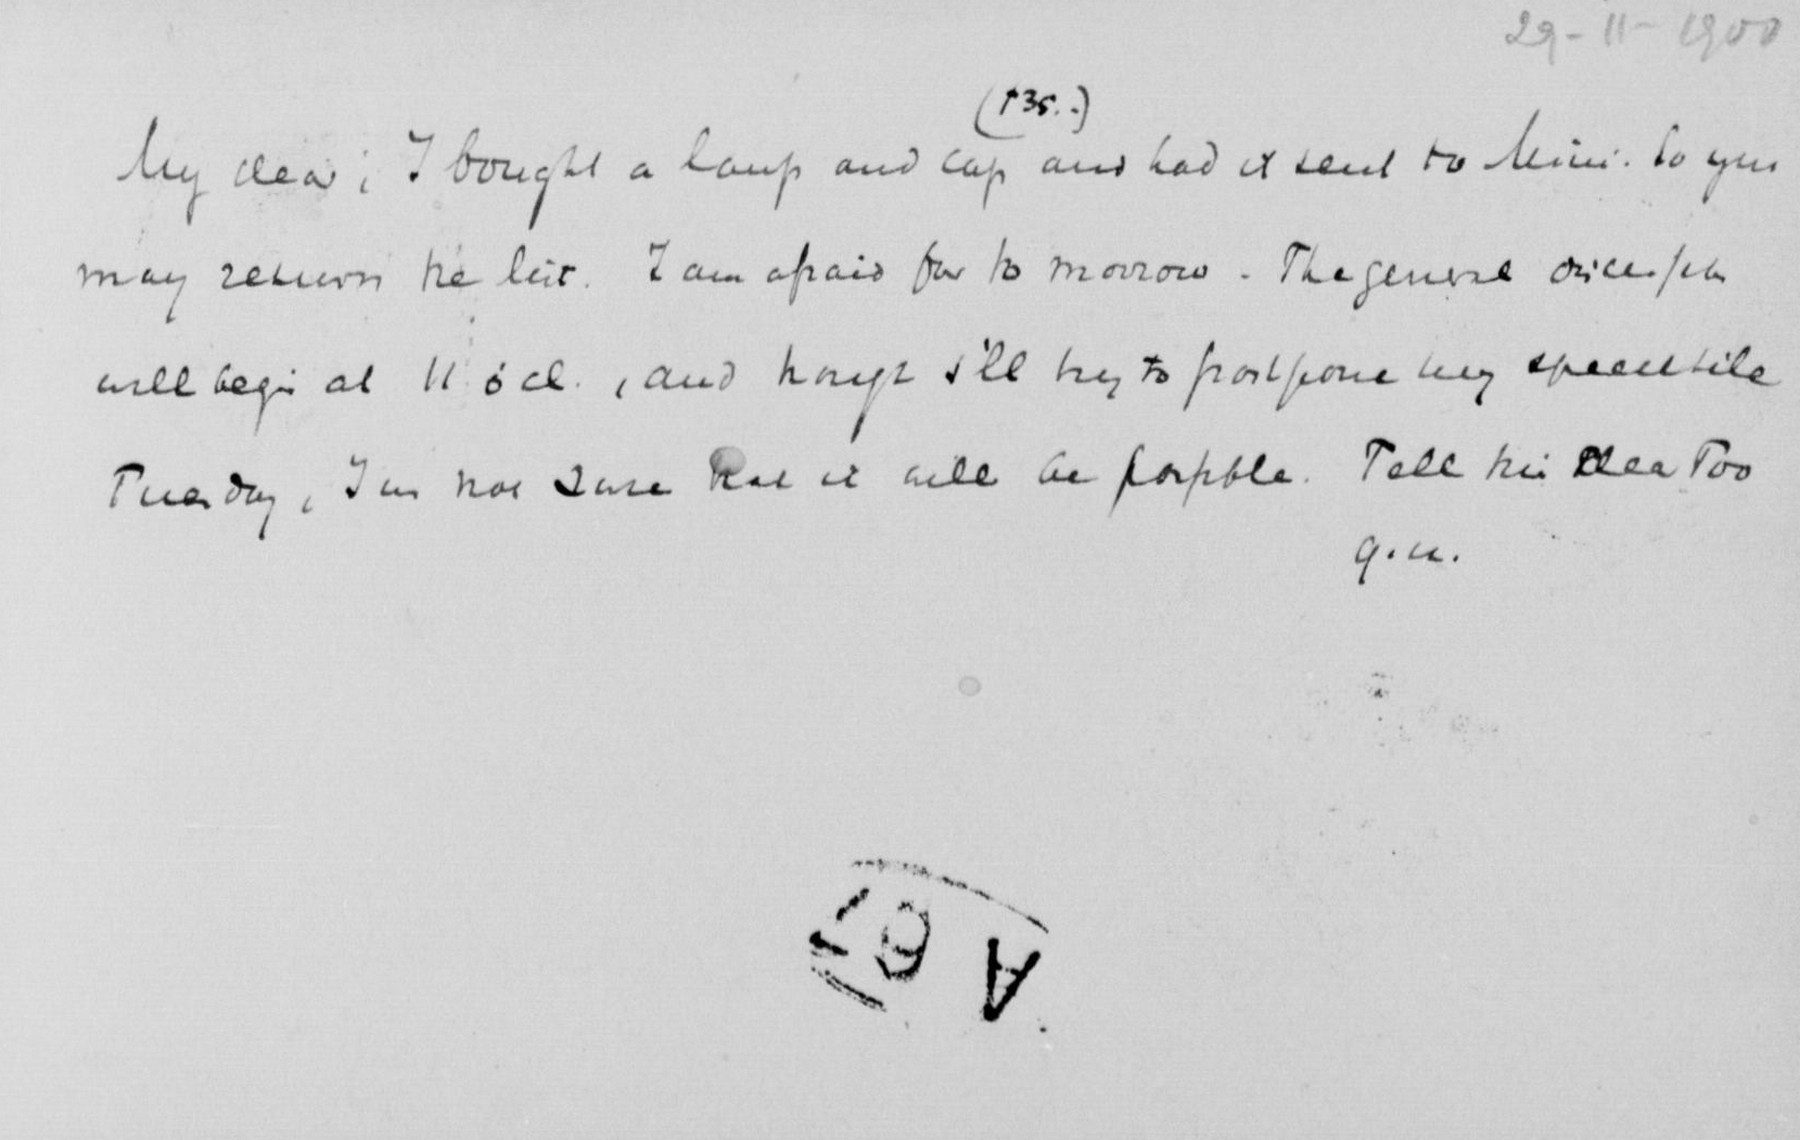 29-11-1900
My dear, I bought a lamp and cap and had it sent to Mimi. So you
may return the list. I am afraid for to morrow - The general
will begin at 11 o'cl., and though I'll try to postpone my speech till
Tuesday, I'm not sure that it will be possible. Tell Ella Too
A